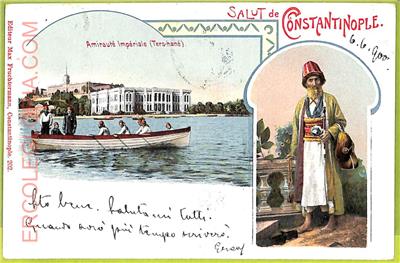 SALUT de CONSTANTINOPLE.
6.6.900
Amirauté Impériale (Ters-hané)
Editeur Max Fruchtermann, Constantinople. 202.
ERGOLEGNANA.COM
Sto bene. Salutami tutti.
Quando avrò più tempo scriverò.